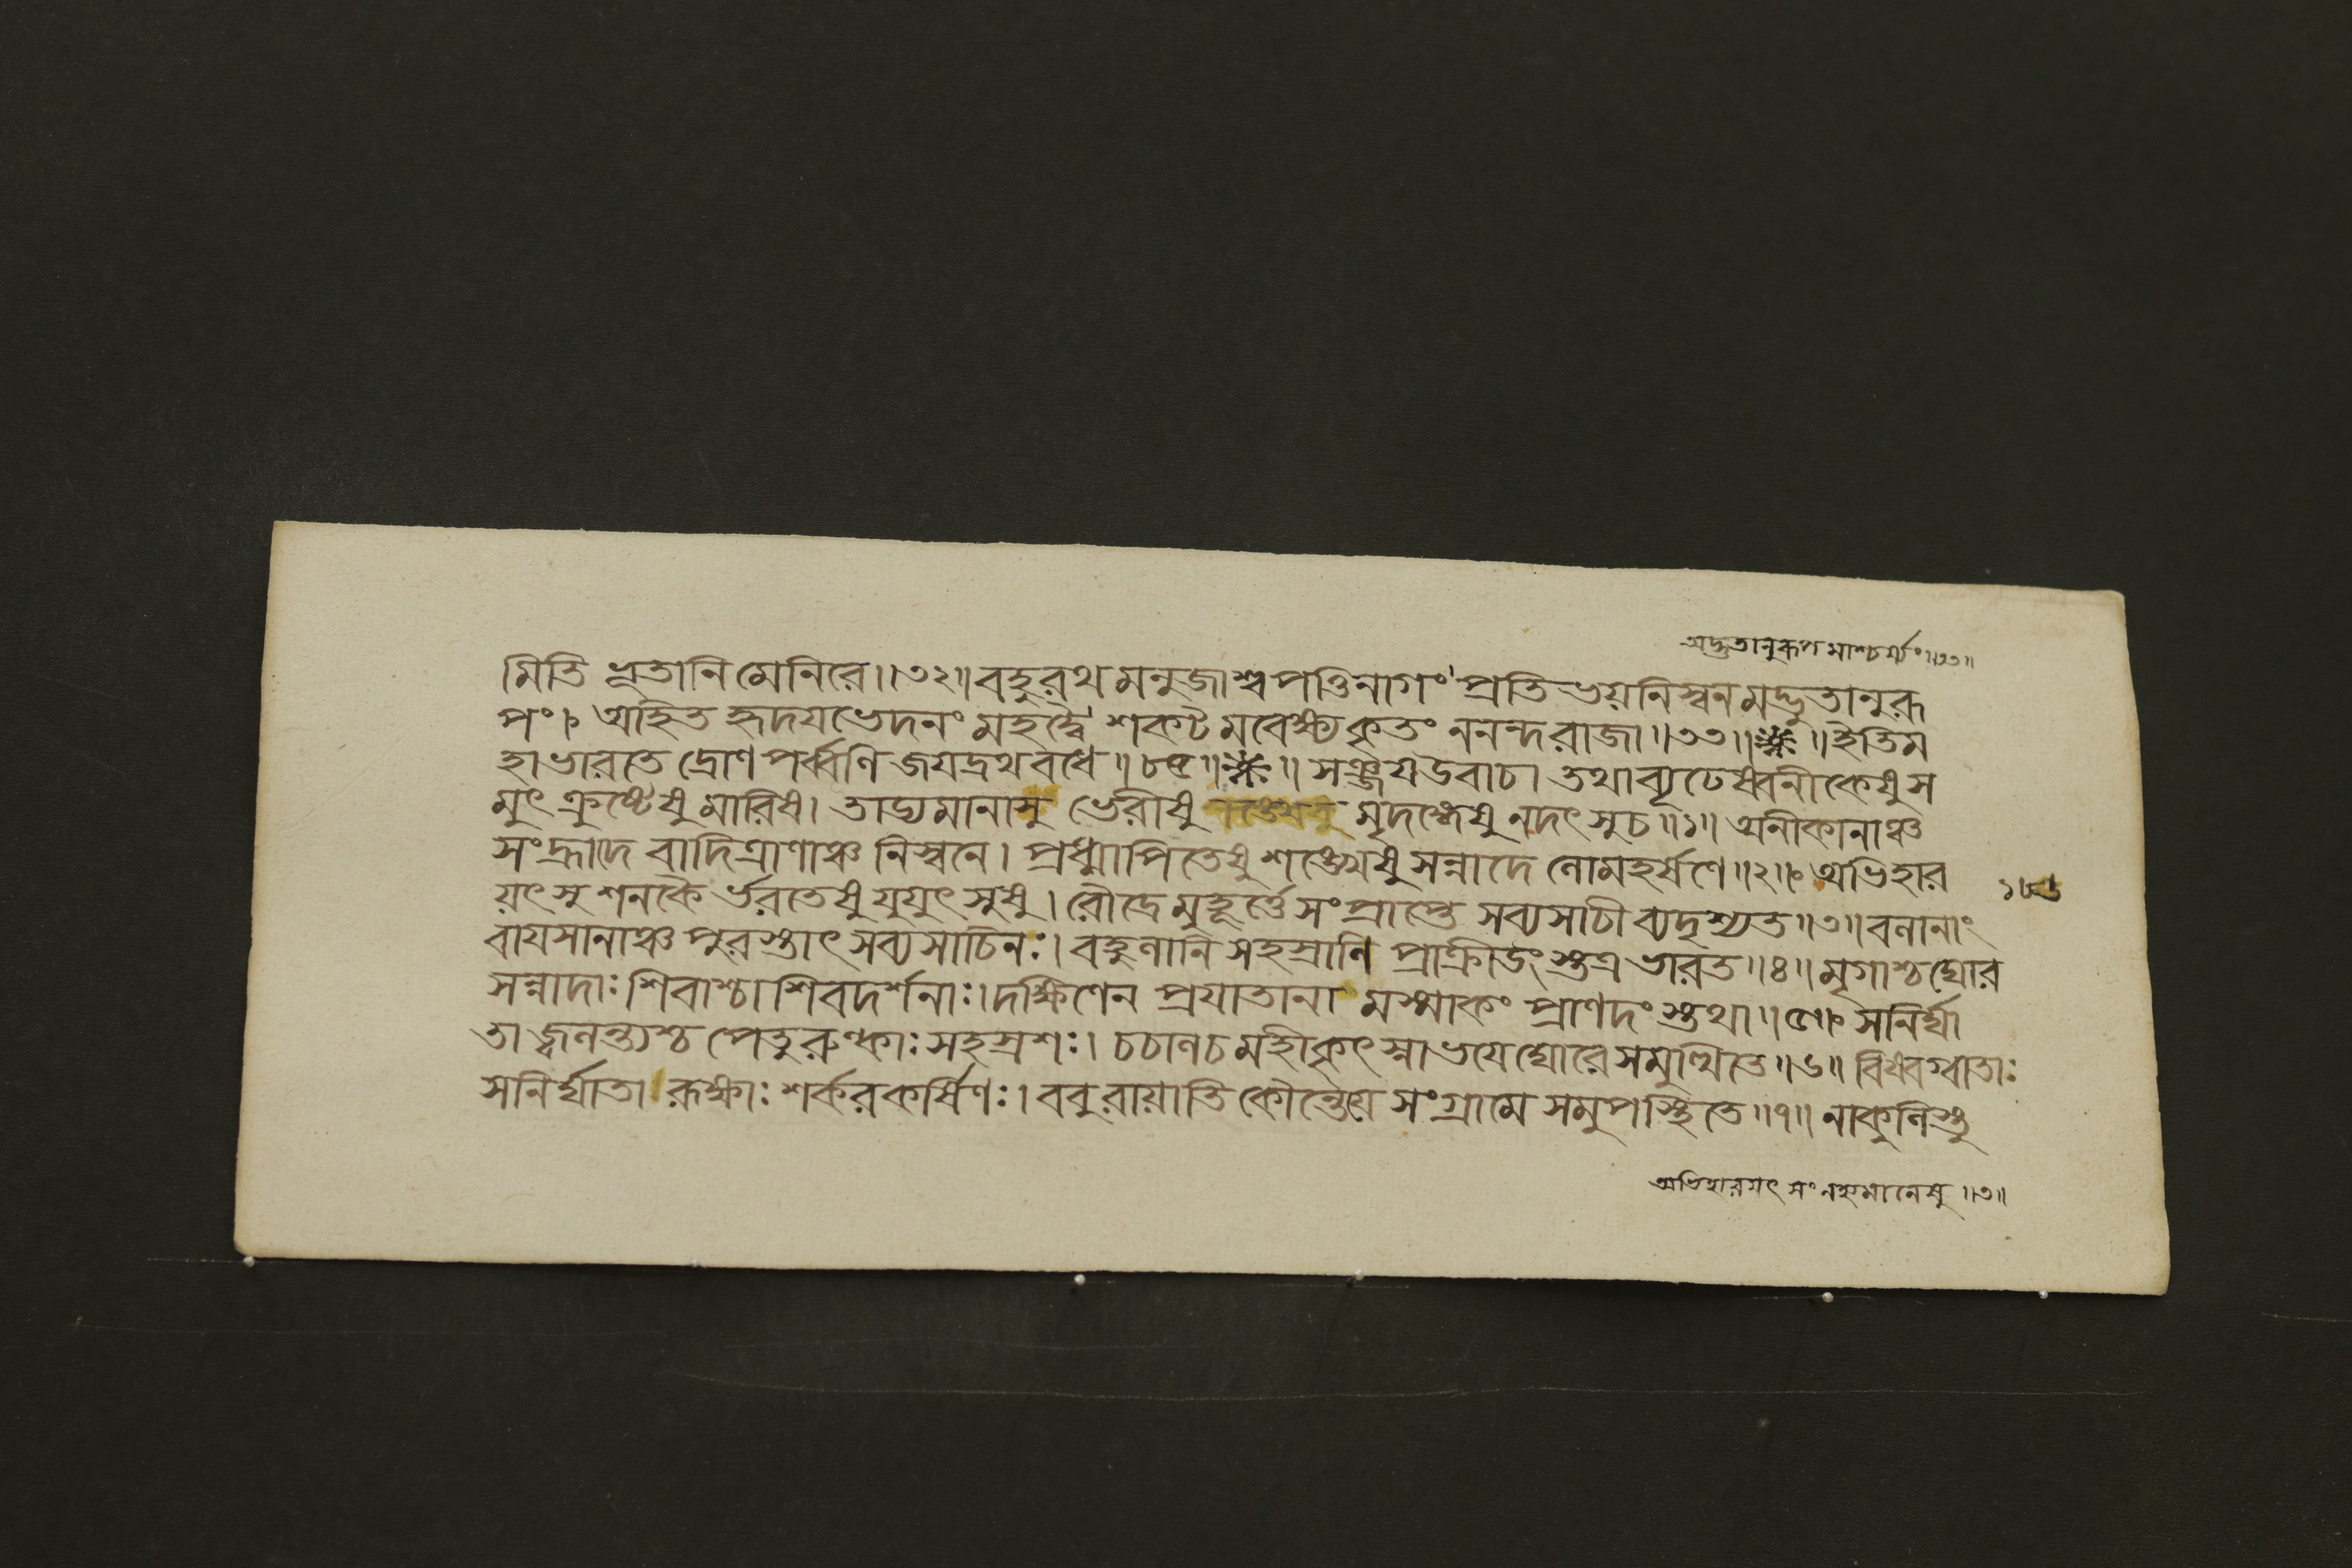 অদ্ভুতানুরূপমাশ্চর্য্যং॥৩৩॥
মিতি ভূতানি মেনিরে॥৩২॥বহুরথ মনুজাশ্বপত্তিনাগং প্রতিভয়নিস্বনমদ্ভুতানুরূ
পং। অহিত হৃদয়ভেদনং মহদ্বৈ শকটমবেক্ষ্যকৃতং ননন্দরাজা॥৩৩॥ ॥ইতিম
হাভারতে দ্রোণপর্ব্বণি জয়দ্রথবধে॥৮৫॥ ॥ সঞ্জয়উবাচ। তথাব্যূঢেষ্বনীকেষুস
মুৎক্রুষ্টেষুমারিষ। তাড্যমানাসু ভেরীষু মৃদঙ্গেষুনদৎসুচ॥১॥ অনীকানাঞ্চ
সংহ্রাদে বাদিত্রাণাঞ্চ নিস্বনে। প্রধ্মাপিতেষুশঙ্খেষুসন্নাদে লোমহর্ষণে॥২॥ অভিহার
য়ৎসুশনকৈর্ভরতেষুযুযুৎসুষু। রৌদ্রেমুহূর্ত্তেসংপ্রাপ্তে সব্যসাচীব্যদৃশ্যত॥৩॥বলানাং
১৮৬
বায়সানাঞ্চপুরস্তাৎসব্যসাচিনঃ। বহুলানিসহস্রাণি প্রাক্রীডংস্তত্রভারত॥৪॥মৃগাশ্চঘোর
সন্নাদাঃশিবাশ্চাশিবদর্শনাঃ।দক্ষিণেন প্রয়াতানামস্মাকং প্রাণদংস্তথা॥৫॥ সনির্ঘা
তাজ্বলন্ত্যশ্চপেতুরুল্কাঃসহস্রশঃ। চচালচমহীকৃৎস্নাভয়েঘোরেসমুত্থিতে॥৬॥ বিষ্বগ্বাতাঃ
সনির্ঘাতারূক্ষাঃশর্করকর্ষিণঃ। ববুরায়াতিকৌন্তেয়েসংগ্রামেসমুপস্থিতে॥৭॥নাকুলিস্তু
অভিহারয়ৎ সংনহ্যমানেষু॥৩॥